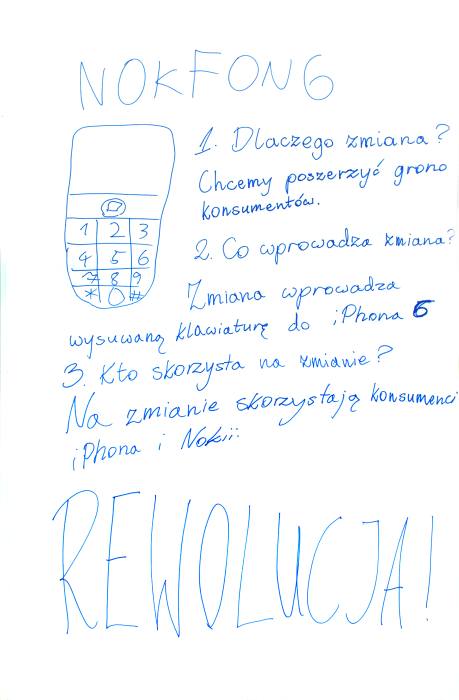 NOKFON6
1. Dlaczego zmiana?
Chcemy poszerzyć grono
konsumentów.
1 2 3
4 5 6
7 8 9
* 0 #
2. Co wprowadza zmiana?
Zmiana wprowadza
wysuwaną klawiaturę do iPhona 6
3. Kto skorzysta na zmianie?
Na zmianie skorzystają konsumenci
iPhona i Nokii:
REWOLUCJA!